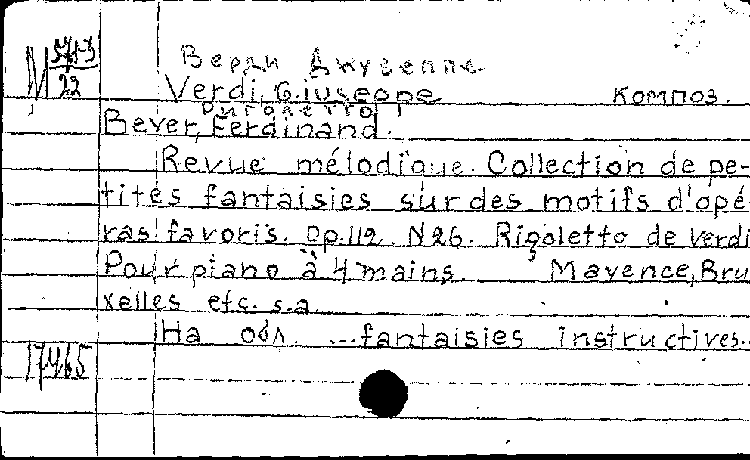 М 571-3/22
Верди Джузеппе
Verdi, Giuseppe Композ.
Риголетто
Beyer, Ferdinand.
Revue mélodique. Collection de pe-
tites fantaisies sur des motifs d'opé-
ras favoris. Op. 112. N 26. Rigoletto de Verdi
Pour piano à 4 mains. Mayence, Bru-
xelles etc. s.a.
На обл. ...fantaisies instructives...
17465